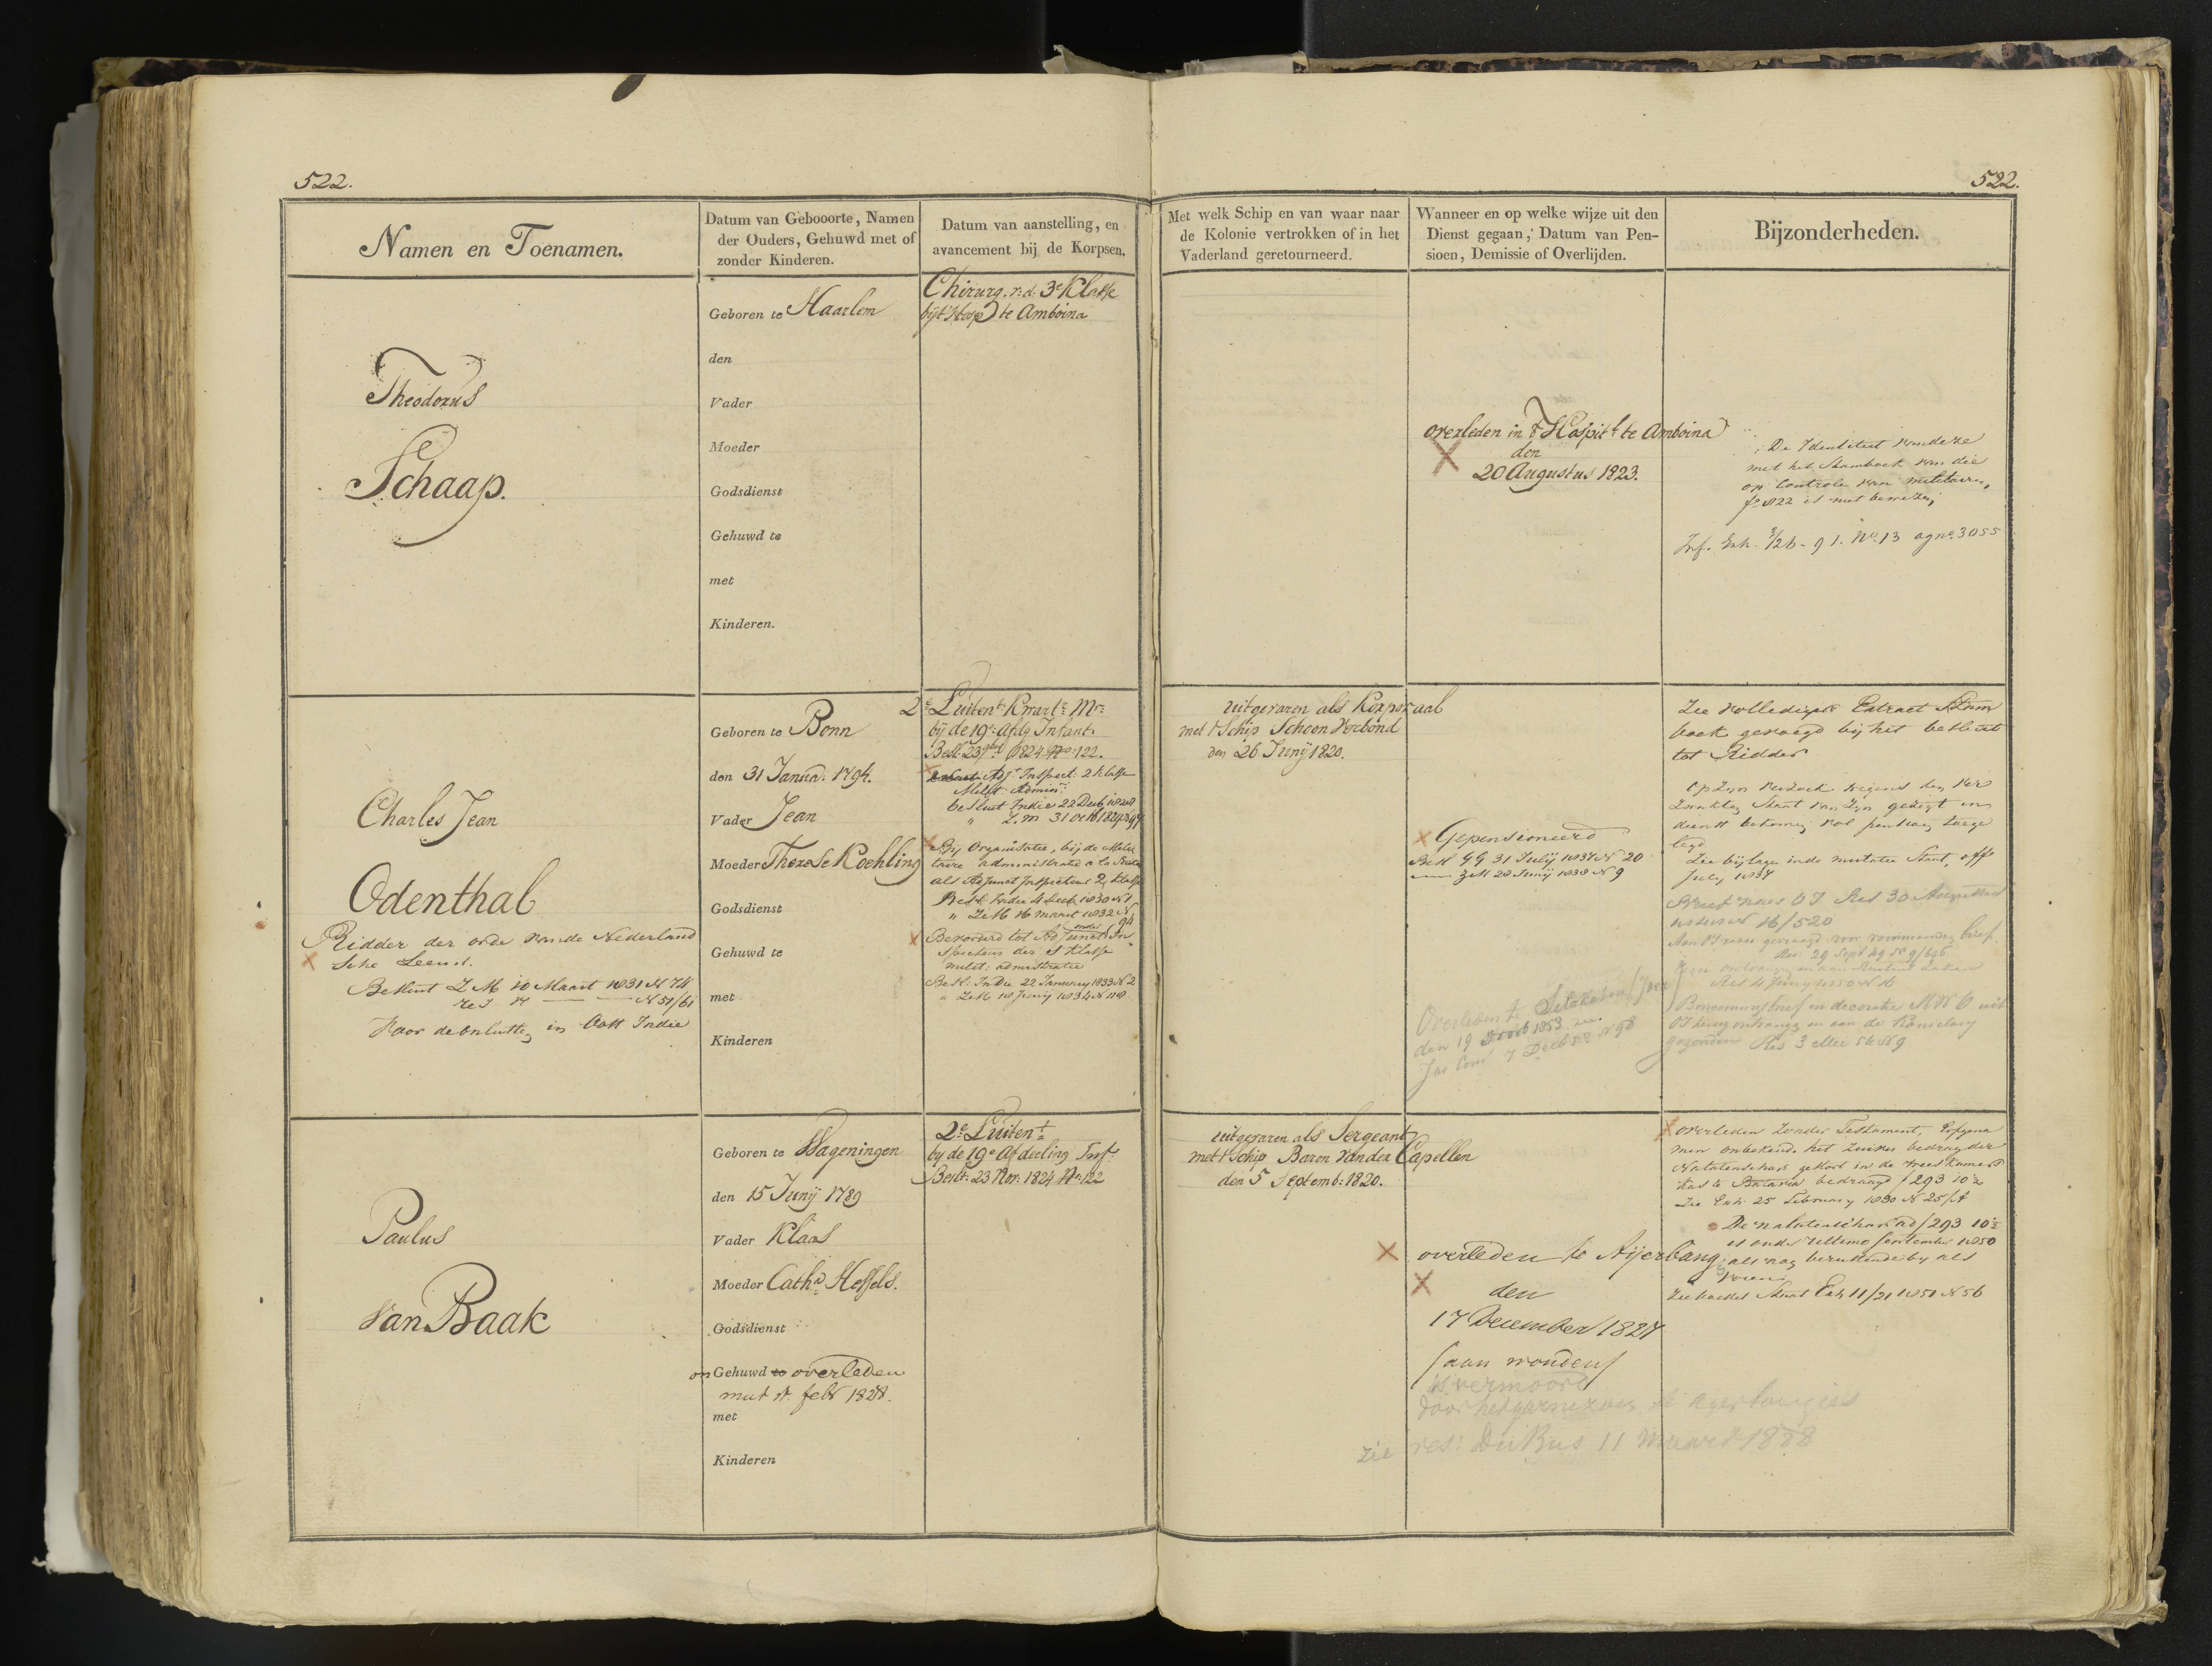 522.
522.
Namen en Toenamen.
Datum van Gebooorte, Namen
der Ouders, Gehuwd met of
zonder Kinderen.
Datum van aanstelling, en
avancement bij de Korpsen.
Met welk Schip en van waar naar
de Kolonie vertrokken of in het
Vaderland geretourneerd.
Wanneer en op welke wijze uit den
Dienst gegaan, Datum van Pen-
sioen, Demissie of Overlijden.
Bijzonderheden.
Theodorus
Schaap.
Geboren te Haarlem
den
Vader
Moeder
Godsdienst
Gehuwd te
met
Kinderen.
Chirurg. r: d. 3e Klasse
bij 't Hosp te Amboina
overleden in 't Hospit.l te Amboina
den
20 Augustus 1823.
De Identiteit van deze
met het Stamboek van die
op Controle van militairen,
fo 822 is niet bewezen,
Inf. Exh. 5/26 - 91. No 13 ag no 3055
Charles Jean
Odenthal
Ridder der orde van de Nederland
sche Leeuw.
Besluit Z M 10 Maart 1831 N 74
N 51/61
Voor de onlusten in Oost Indie
Geboren te Bonn
den 31 Janua: 1794.
Vader Jean
Moeder Therese Koehling
Godsdienst
Gehuwd te
met
Kinderen
2e Luitent. Kwart.r Mr.
bij de 19e Afdg Infant.
Besl. 23 1824 No. 122.
Adjt Inspect: 2 klasse
Milit. Admin.
besluit Indie 22 Decb 1828
" Z. M 31 Octb 1829 N 94
Bij Organisatie, bij de Mili
taire administratie a la Suite
als Adjunct Inspecteur 2 klasse
Besl. Indie 4 Decb 1830 N 1
" Z. M 16 maart 1832 N 94
Bevorderd tot Adjunct onder In
specteur der 1 Klasse
milit: administratie
Besl. Indie 22 January 1833 N 2
" Z. M 10 Junij 1834 N 118
uitgevaren als Korporaal
met 't Schip Schoon Verbond
den 26 Junij 1820.
Gepensioneerd
Besl GG 31 Julij 1837 N 20
ZM 28 Junij 1838 N 9
Overleden te (Java)
den 19 1853
7 Decb 58 N 98
Zie vollediger Extract Stam
boek gevoegd bij het besluit
tot Ridder
Op zyn verzoek wegens den ver
zwakten Staat van zyn gezigt in
dienst bekomen vol pensioen toege
legd
Zie bijlage in de mutatie Staat, off
July 1837
16/520
29 Sept 49 N 9/696
Res 4 Junij 1850 N 16
Benoemingsbrief en decoratie M W O uit
OI terug ontvangen en aan de Kanselary
gezonden Res 3 Mei 56 N 9
Paulus
Van Baak
Geboren te Wageningen
den 15 Junij 1789
Vader Klaas
Moeder Catha. Hessels.
Godsdienst
Gehuwd te overleden
mut. st. febr 1828.
met
Kinderen
2e Luitent
by de 19e Afdeeling Inf.
Beslt. 23 Nov: 1824 No. 122
uitgevaren als Sergeant
met 't Schip Baron van der Capellen
den 5 Septemb: 1820.
overleden te Aijerbangis
den
17 December 1827
(aan wonden)
is vermoord
door het garnizoen te Ayerbangies
zie res: Du Bus 11 maart 1828
overleden zonder Testament, Erfgena
men onbekend. het zuiver bedrag der
Nalatenschap gestort in de weeskamers
kas te Batavia bedraagd ƒ 293 10½
Zie Exh. 25 February 1830 N 25/A
De nalatenschap ad ƒ 293 10½
is onder ultimo september 1850
als nog berustende by als
voren
Zie Staat Exh 11/21 1851 N 56